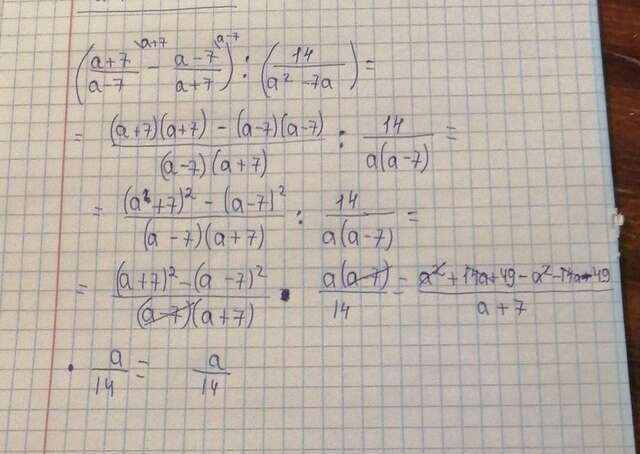 ((a+7)/(a-7) \ a+7 - (a-7)/(a+7) \ a-7) : (14/(a² - 7a)) =
= ((a+7)(a+7) - (a-7)(a-7))/((a-7)(a+7)) : 14/(a(a-7)) =
= ((a²+7)² - (a-7)²)/((a-7)(a+7)) : 14/(a(a-7)) =
= ((a+7)² - (a-7)²)/((a-7)(a+7)) · a(a-7)/14 = (a²+14a+49-a²-14a-49)/(a+7)
· a/14 = a/14